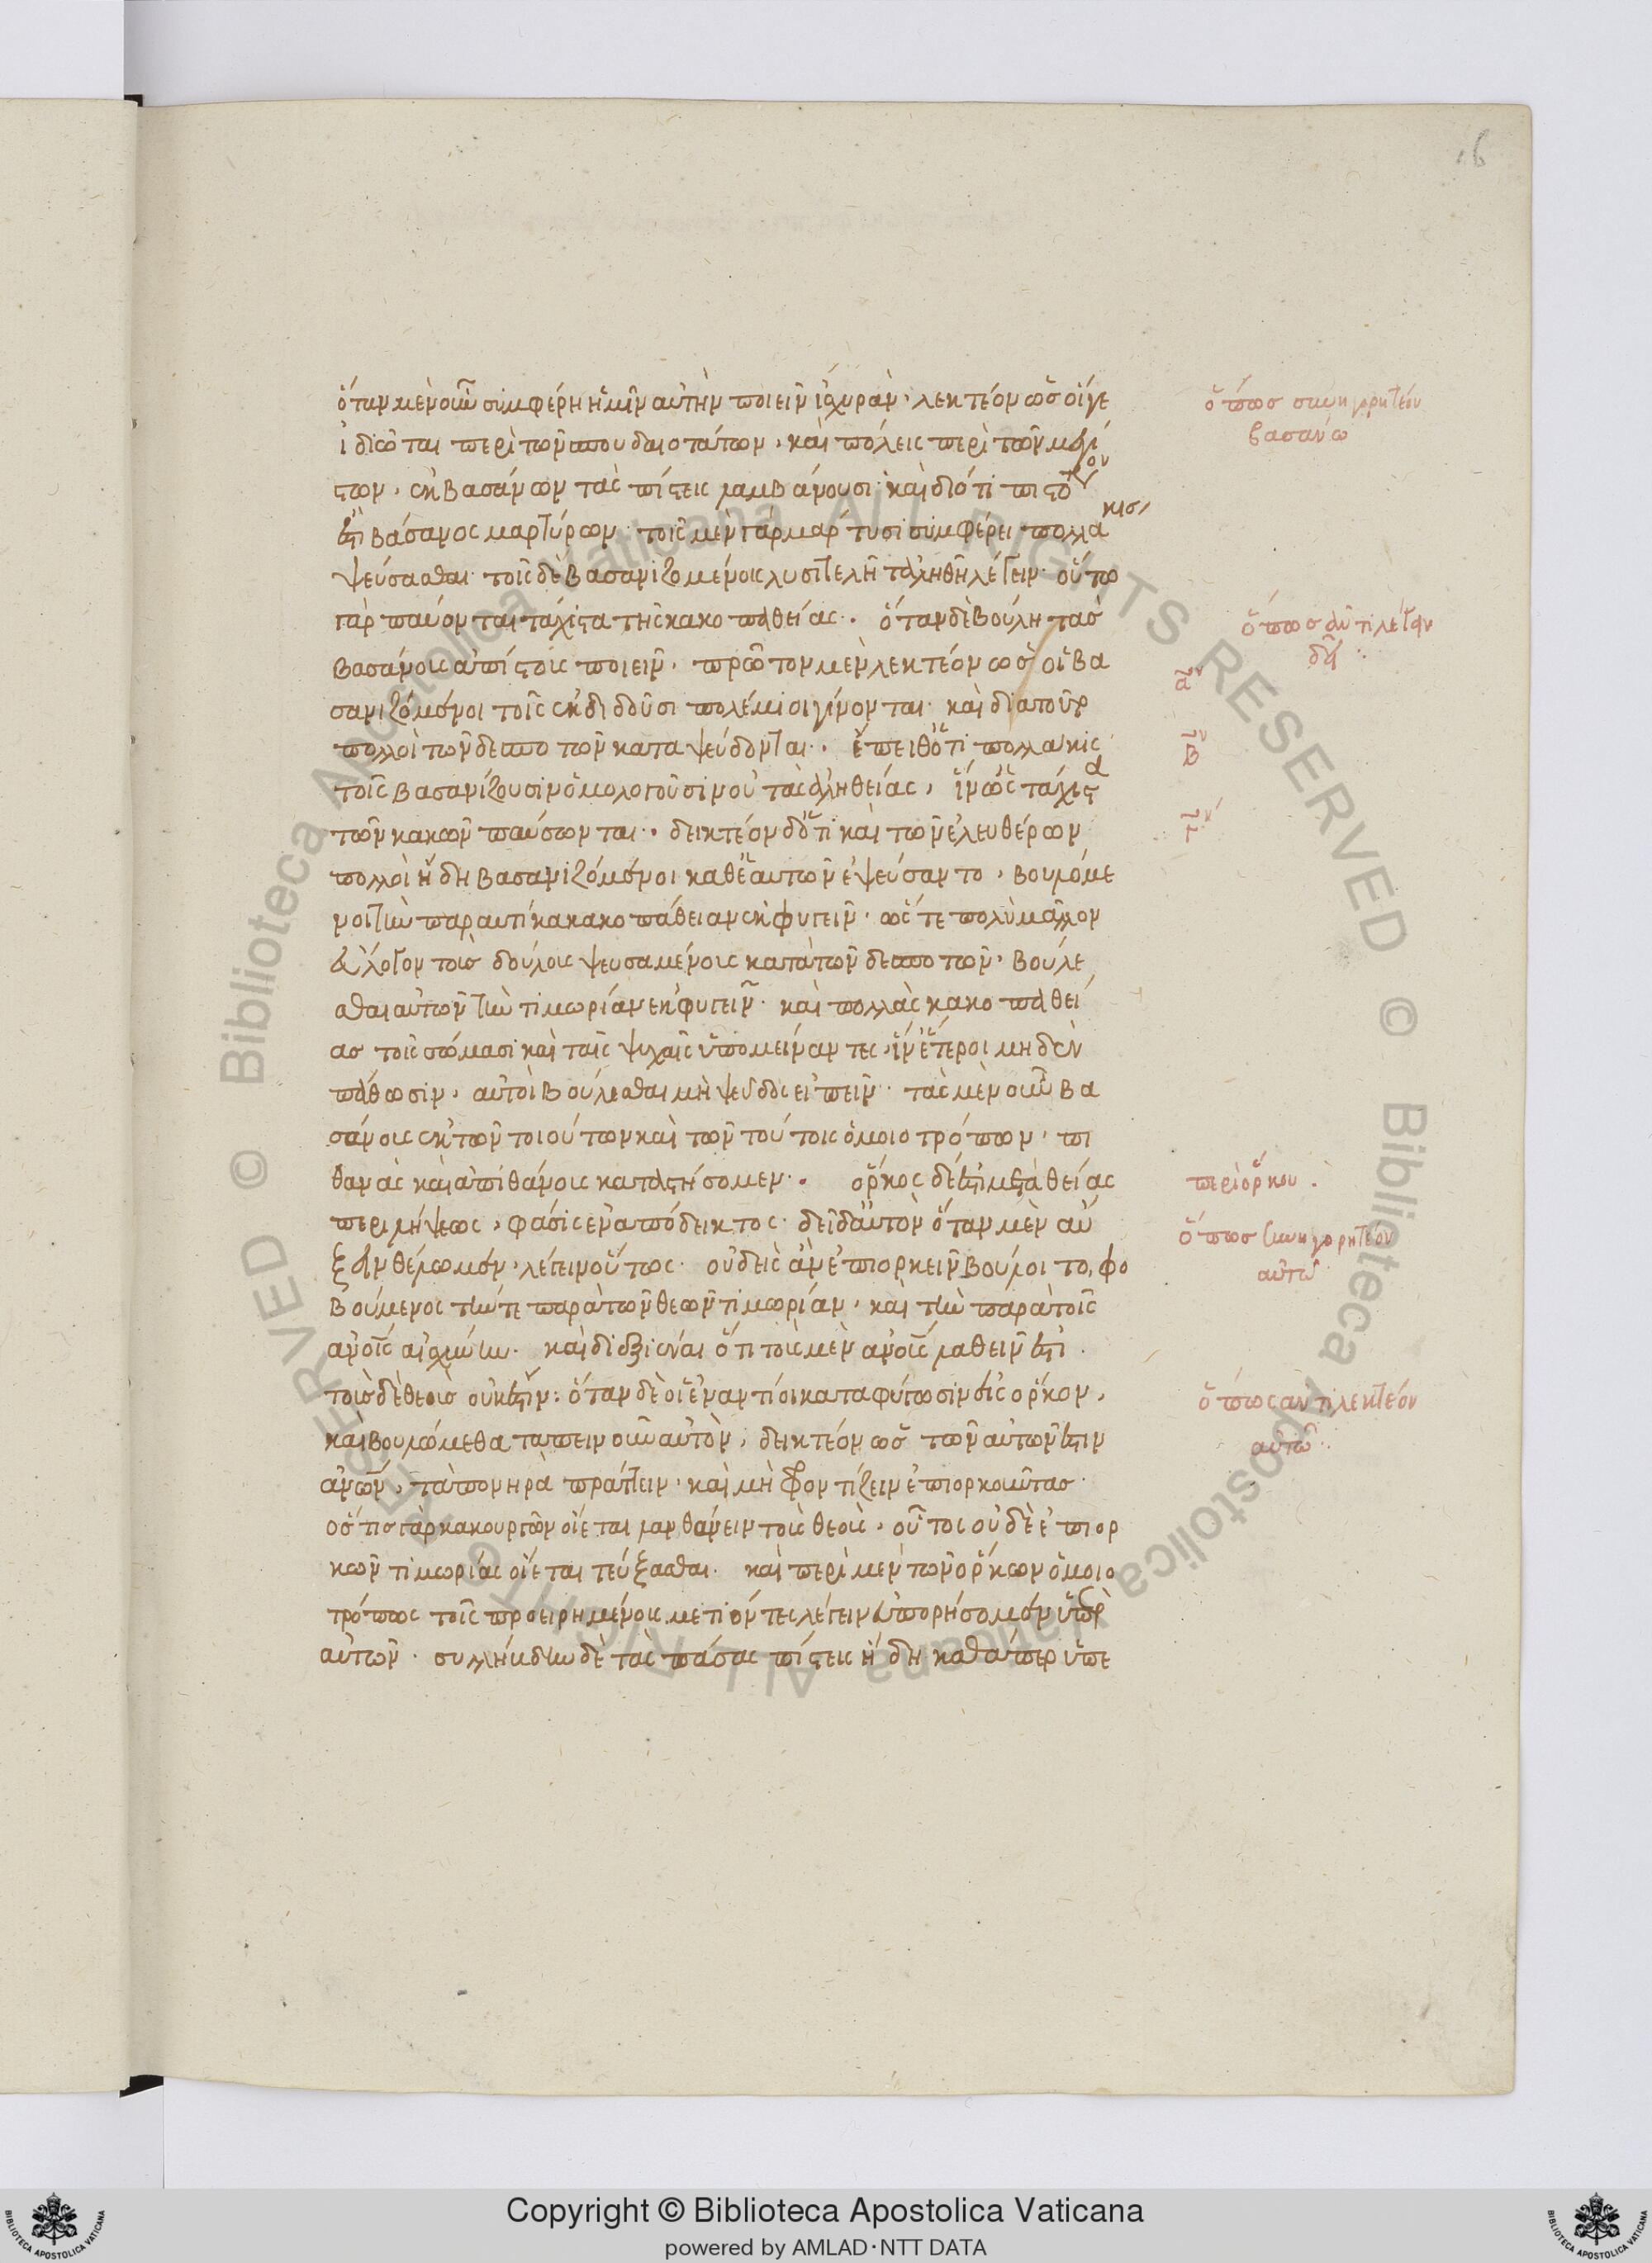 16
ὅταν μὲν οὖν συμφέρῃ ἡμῖν αὐτὴν ποιεῖν ἰσχυράν, λεκτέον ὡς οἵ γε
ἰδιῶται περὶ τῶν σπουδαιοτάτων, καὶ πόλεις περὶ τῶν μεγί
στων, ἐκ βασάνων τὰς πίστεις λαμβάνουσι· καὶ διότι πιστότερον
ἐστὶ βάσανος μαρτύρων· τοῖς μὲν γὰρ μάρτυσι συμφέρει πολλάκις
ψεύσασθαι· τοῖς δὲ βασανιζομένοις λυσιτελῆ τἀληθῆ λέγειν· οὕτω
γὰρ παύονται τάχιστα τῆς κακοπαθείας. ὅταν δὲ βούλῃ τὰσ
βασάνους ἀπίστους ποιεῖν, πρῶτον μὲν λεκτέον ὡς οἱ βα
σανιζόμενοι τοῖς ἐκδιδοῦσι πολέμιοι γίνονται· καὶ διατοῦτο
πολλοὶ τῶν δεσποτῶν καταψεύδονται. ἔπειθ' ὅτι πολλάκις
τοῖς βασανίζουσιν ὁμολογοῦσιν οὐ τὰς ἀληθείας, ἵν' ὡς τάχιστα
τῶν κακῶν παύσωνται. δεικτέον δ' ὅτι καὶ τῶν ἐλευθέρων
πολλοὶ ἤδη βασανιζόμενοι καθ' ἑαυτῶν ἐψεύσαντο, βουλόμε
νοι τὴν παραυτίκα κακοπάθειαν ἐκφυγεῖν· ὥστε πολὺ μᾶλλον
εὔλογον τοῖσ δούλοις ψευσαμένοις κατὰ τῶν δεσποτῶν, βούλε
σθαι αὐτῶν τὴν τιμωρίαν ἐκφυγεῖν· καὶ πολλὰς κακοπαθεί
ασ τοῖς σώμασι καὶ ταῖς ψυχαῖς ὑπομείναντες, ἵν' ἕτεροι μηδὲν
πάθωσιν, αὐτοὶ βούλεσθαι μὴ ψεῦδος εἰπεῖν· τὰς μὲν οὖν βα
σάνους ἐκ τῶν τοιούτων καὶ τῶν τούτοις ὁμοιοτρόπων, πι
θανὰς καὶ ἀπιθάνους καταστήσομεν. ὅρκος δέ ἐστι μετὰ θείας
περιλήψεως, φάσις ἀναπόδεικτος· δεῖ δ' αὐτὸν ὅταν μὲν αὔ
ξειν θέλωμεν, λέγειν οὕτως· οὐδεὶς ἂν ἐπιορκεῖν βούλοιτο, φο
βούμενος τήν τε παρὰ τῶν θεῶν τιμωρίαν, καὶ τὴν παρὰ τοῖς
ἀνοῖς αἰσχύνην· καὶ διεξιέναι ὅτι τοὺς μὲν ἀνους λαθεῖν ἐστι·
τοὺσ δὲ θεοὺσ οὐκ ἔστιν: ὅταν δὲ οἱ ἐναντίοι καταφύγωσιν εἰς ὅρκον,
καὶ βουλώμεθα ταπεινοῦν αὐτόν, δεικτέον ὡς τῶν αὐτῶν ἐστιν
ἀνων, τὰ πονηρὰ πράττειν, καὶ μὴ φροντίζειν ἐπιορκοῦντασ·
ὅστισ γὰρ κακουργῶν οἴεται λανθάνειν τοὺς θεούς, οὗτος οὐδὲ ἐπιορ
κῶν τιμωρίας οἴεται τεύξασθαι· καὶ περὶ μὲν τῶν ὅρκων ὁμοιο
τρόπως τοῖς προειρημένοις μετιόντες λέγειν εὐπορήσομεν ὑπὲρ
αὐτῶν· συλλήβδην δὲ τὰς πάσας πίστεις ἤδη καθάπερ ὑπε
ὅπωσ συνηγορητέον
βασάνω
ὅπωσ ἀντιλέγειν
δεῖ:
αον
βον
γον
περὶ ὅρκου.
ὅπωσ συνηγορητέον
αὐτῶ
ὅπως ἀντιλεκτέον
αὐτῶ:
© Biblioteca Apostolica Vaticana ALL RIGHTS RESERVED
© Biblioteca Apostolica Vaticana ALL RIGHTS RESERVED
Copyright © Biblioteca Apostolica Vaticana
powered by AMLAD·NTT DATA
BIBLIOTECA APOSTOLICA VATICANA
BIBLIOTECA APOSTOLICA VATICANA